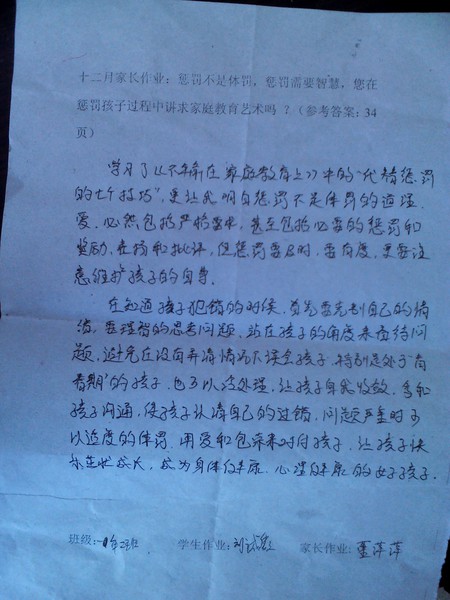 十二月家长作业：惩罚不是体罚，惩罚需要智慧，您在
惩罚孩子过程中讲求家庭教育艺术吗？（参考答案：34
页）
学习了《不输在家庭教育上》中的“代替惩罚
的七个技巧”，更让我明白惩罚不是体罚的道理。
爱，必然包括严格要求，甚至包括必要的惩罚和
奖励，表扬和批评，但惩罚要及时，要有度，更要注
意维护孩子的自尊。
在知道孩子犯错的时候，首先要克制自己的情
绪，要理智的思考问题，站在孩子的角度来看待问
题，避免在没有弄清情况下误会孩子，特别是处于“青
春期”的孩子，也可以冷处理，让孩子自我收敛，多和
孩子沟通，使孩子认清自己的过错，问题严重时可
以适度的体罚，用爱和包容来对付孩子，让孩子快
乐茁壮成长，成为身体健康，心理健康的好孩子。
班级：一年二班 学生作业： 家长作业：萍萍